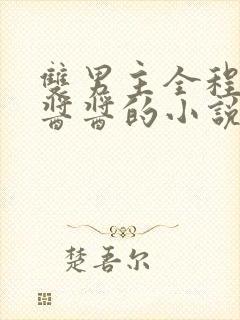 雙男主全程
醬醬的小說
楚吾尔